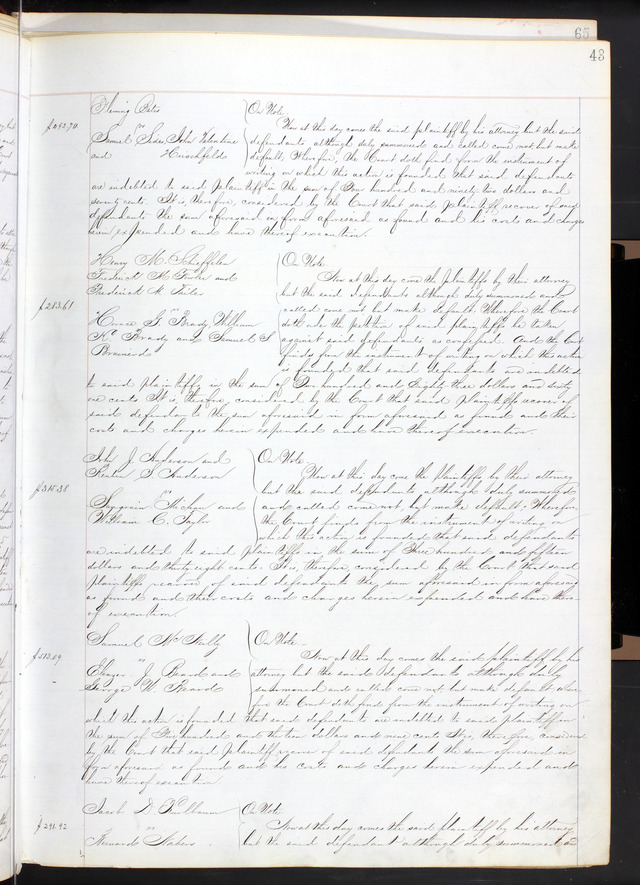 65
43
Fleming Bates } On Note
vs Now at this day comes the said plaintiff by his attorney but the said
John Valentine defendants although duly summoned and called come not but make
and Hirschfeld default, Therefore, the Court doth find from the instrument of
writing on which this action is founded that said defendants
are indebted to said plaintiff in the sum of One hundred and ninety two dollars and
seventy cents. It is, therefore, considered by the Court that said plaintiff recover of said
defendants the sum aforesaid in form aforesaid as found and his costs and charges
herein expended and have thereof execution.
Henry M. } On Note
and Now at this day come the plaintiffs by their attorney
Frederick but the said defendants although duly summoned and
$283.61
vs called come not but make default. Therefore the Court
Horace G. Brady, William doth order the petition of said plaintiffs be taken
H. Brady and Samuel S. against said defendants as confessed. And the Court
finds from the instrument of writing on which this action
is founded that said defendants are indebted
to said plaintiffs in the sum of hundred and Eighty three dollars and sixty
one cents. It is, therefore, considered by the Court that said plaintiffs recover of
said defendants the sum aforesaid in form aforesaid as found and their
costs and charges herein expended and have thereof execution.
John J. Anderson and } On Note
S. Anderson Now at this day come the plaintiffs by their attorney
$315.38 vs but the said defendants although duly summoned
and and called come not but make default. Therefore
William C. Taylor the Court finds from the instrument of writing on
which this action is founded that said defendants
are indebted to said plaintiffs in the sum of Three hundred and fifteen
dollars and thirty eight cents. It is, therefore, considered by the Court that said
plaintiffs recover of said defendants the sum aforesaid in form aforesaid
as found and their costs and charges herein expended and have there-
of execution.
Samuel } On Note
vs Now at this day comes the said plaintiff by his
J. Beard and attorney but the said defendants although duly
George W. Beard summoned and called come not but make default where-
fore the Court doth find from the instrument of writing on
which this action is founded that said defendants are indebted to said plaintiff in
the sum of Five hundred and dollars and nine cents. It is, therefore, considered
by the Court that said plaintiff recover of said defendants the sum aforesaid in
form aforesaid as found and his costs and charges herein expended and
have thereof execution
Jacob D. } On Note
$291.92 vs Now at this day comes the said plaintiff by his attorney
but the said defendant although duly summoned and